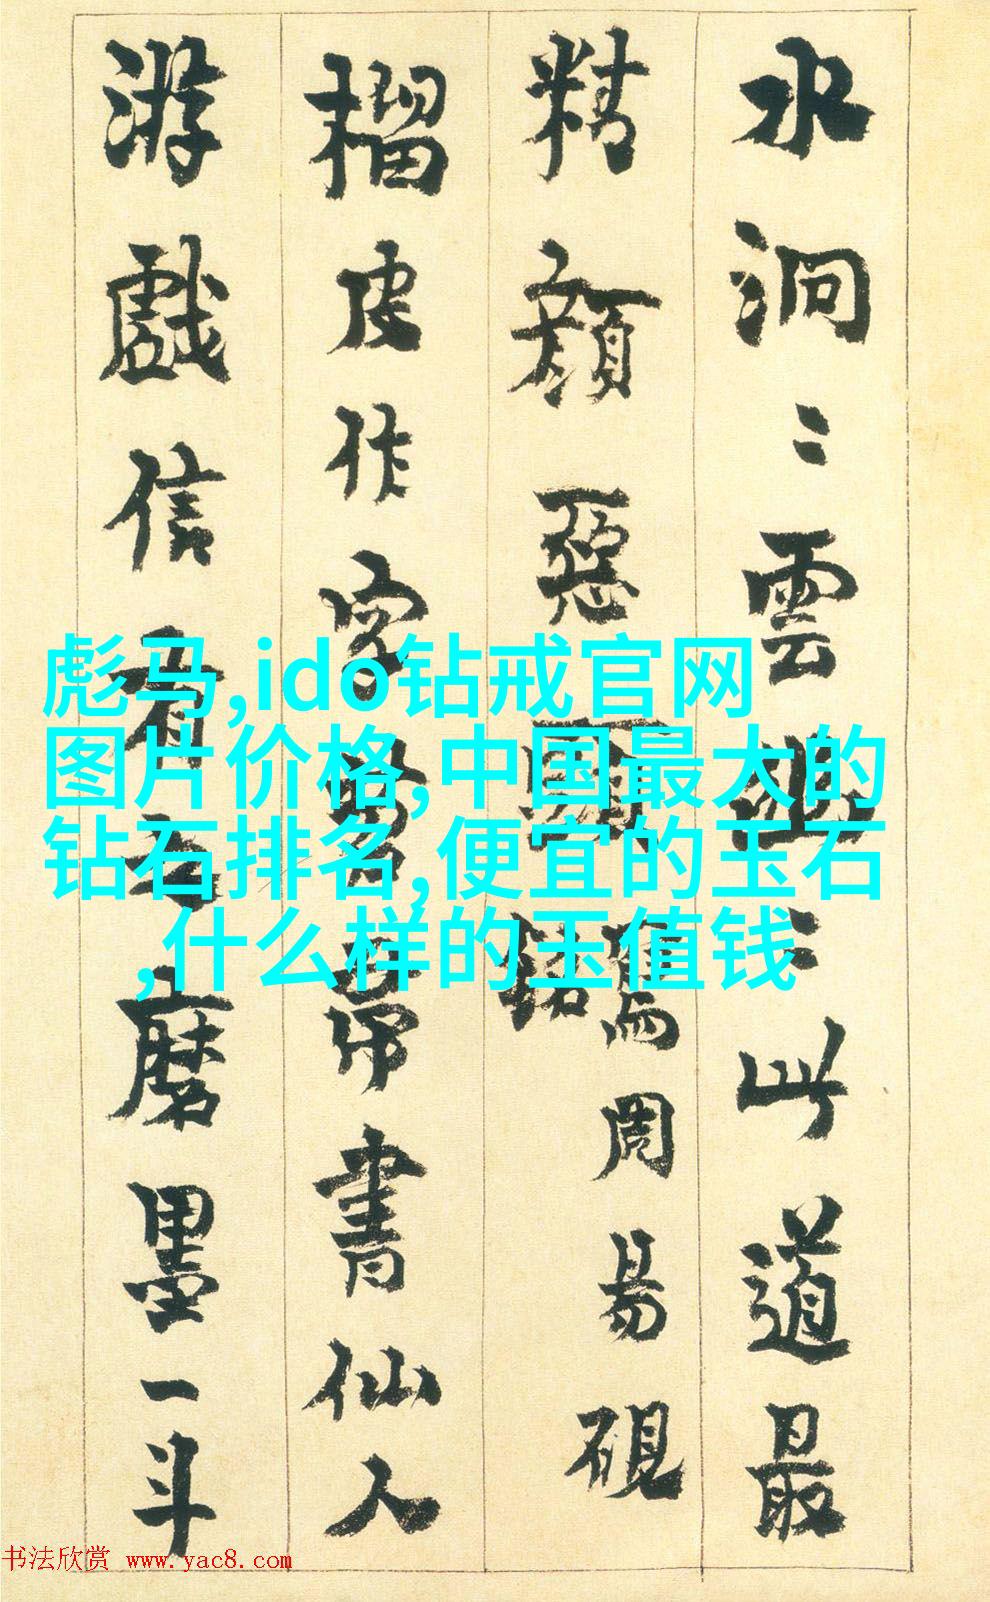 水洞〻雲幽〻此道最
精顔惡頭寫周易硯
榴皮作字帚書仙人
游戲信有之磨墨一斗
彪马,ido钻戒官网
图片价格,中国最大的
钻石排名,便宜的玉石
,什么样的玉值钱
书法欣赏 www.yac8.com